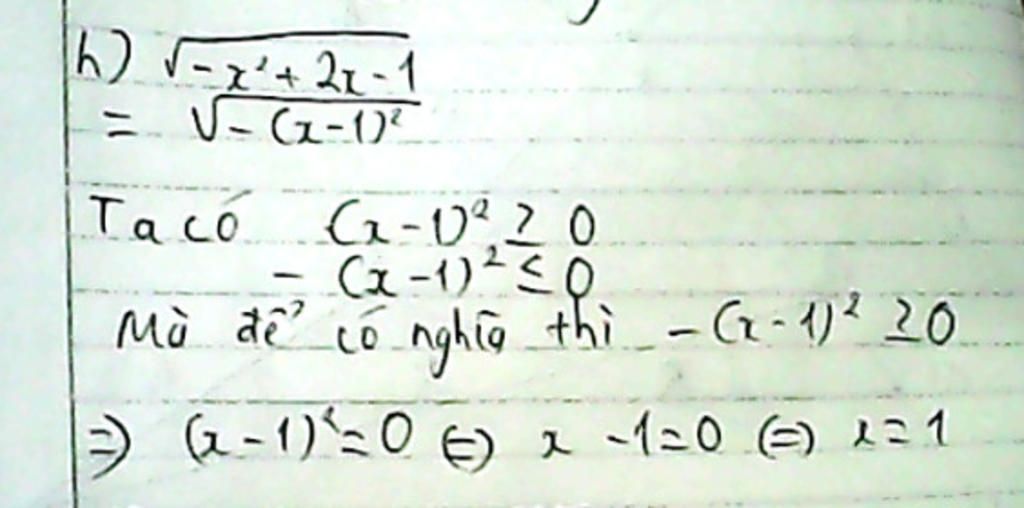 h) √-x² + 2x - 1
= √- (x-1)²
Ta có (x-1)² ≥ 0
- (x-1)² ≤ 0
Mà để có nghĩa thì -(x-1)² ≥ 0
⇒) (x-1)² = 0 (=) x - 1 = 0 (=) x = 1